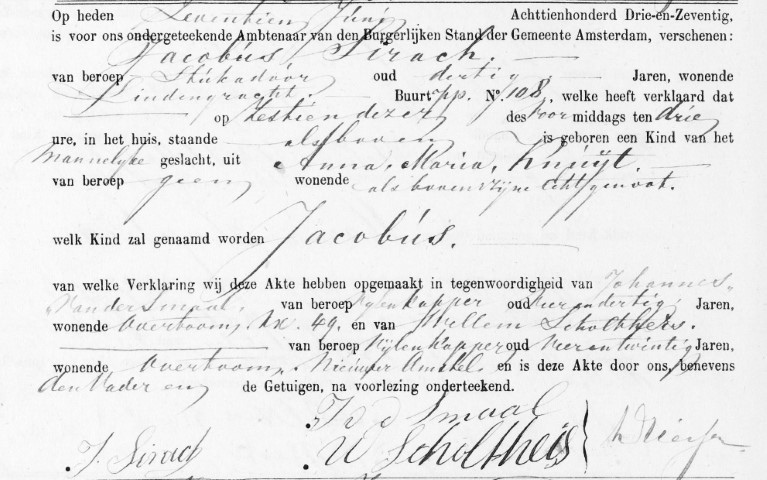 Op heden Seventien Juni Achttienhonderd Drie-en-Zeventig,
is voor ons ondergeteekende Ambtenaar van den Burgerlijken Stand der Gemeente Amsterdam, verschenen:
Jacobus Sirach.
van beroep Stukadoor oud dertig Jaren, wonende
Lindengracht. Buurt pp. No. 108, welke heeft verklaard dat
op Zestien dezer des voor middags ten drie
ure, in het huis, staande als boven is geboren een Kind van het
Mannelyke geslacht, uit Anna Maria Knuijt.
van beroep geen wonende als boven zijne Echtgenoot.
welk Kind zal genaamd worden Jacobus.
van welke Verklaring wij deze Akte hebben opgemaakt in tegenwoordigheid van Johannes
van der Smaal, van beroep Vylenkapper oud Vier en dertig Jaren,
wonende Overtoom, 49, en van Willem Scholtheis.
van beroep Vylenkapper oud Vier en twintig Jaren,
wonende Overtoom, Nieuwer Amstel en is deze Akte door ons, benevens
den Vader en de Getuigen, na voorlezing onderteekend.
J v d Smaal
J. Sirach W Scholtheis